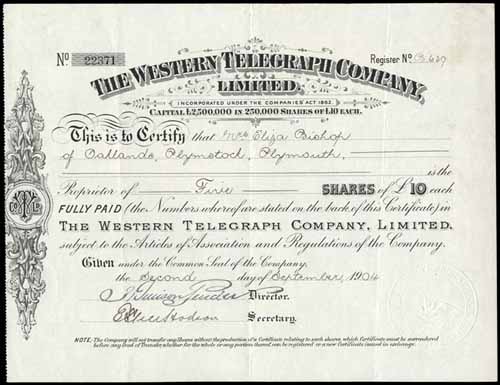 No 22371
Register No
THE WESTERN TELEGRAPH COMPANY,
LIMITED.
INCORPORATED UNDER THE COMPANIES' ACT 1862.
CAPITAL £2,500,000 IN 250,000 SHARES OF £10 EACH.
This is to Certify that Mrs Eliza Bishop
of Oaklands, Plymstock, Plymouth,
is the
Proprietor of Five SHARES of £10 each
FULLY PAID (the Numbers whereof are stated on the back of this Certificate) in
THE WESTERN TELEGRAPH COMPANY, LIMITED,
subject to the Articles of Association and Regulations of the Company.
Given under the Common Seal of the Company,
the Second day of September, 1904
Director.
Secretary.
NOTE. The Company will not transfer any Shares without the production of a Certificate relating to such shares, which Certificate must be surrendered before any deed of Transfer, whether for the whole or any portion thereof, can be registered or a new Certificate issued in exchange.